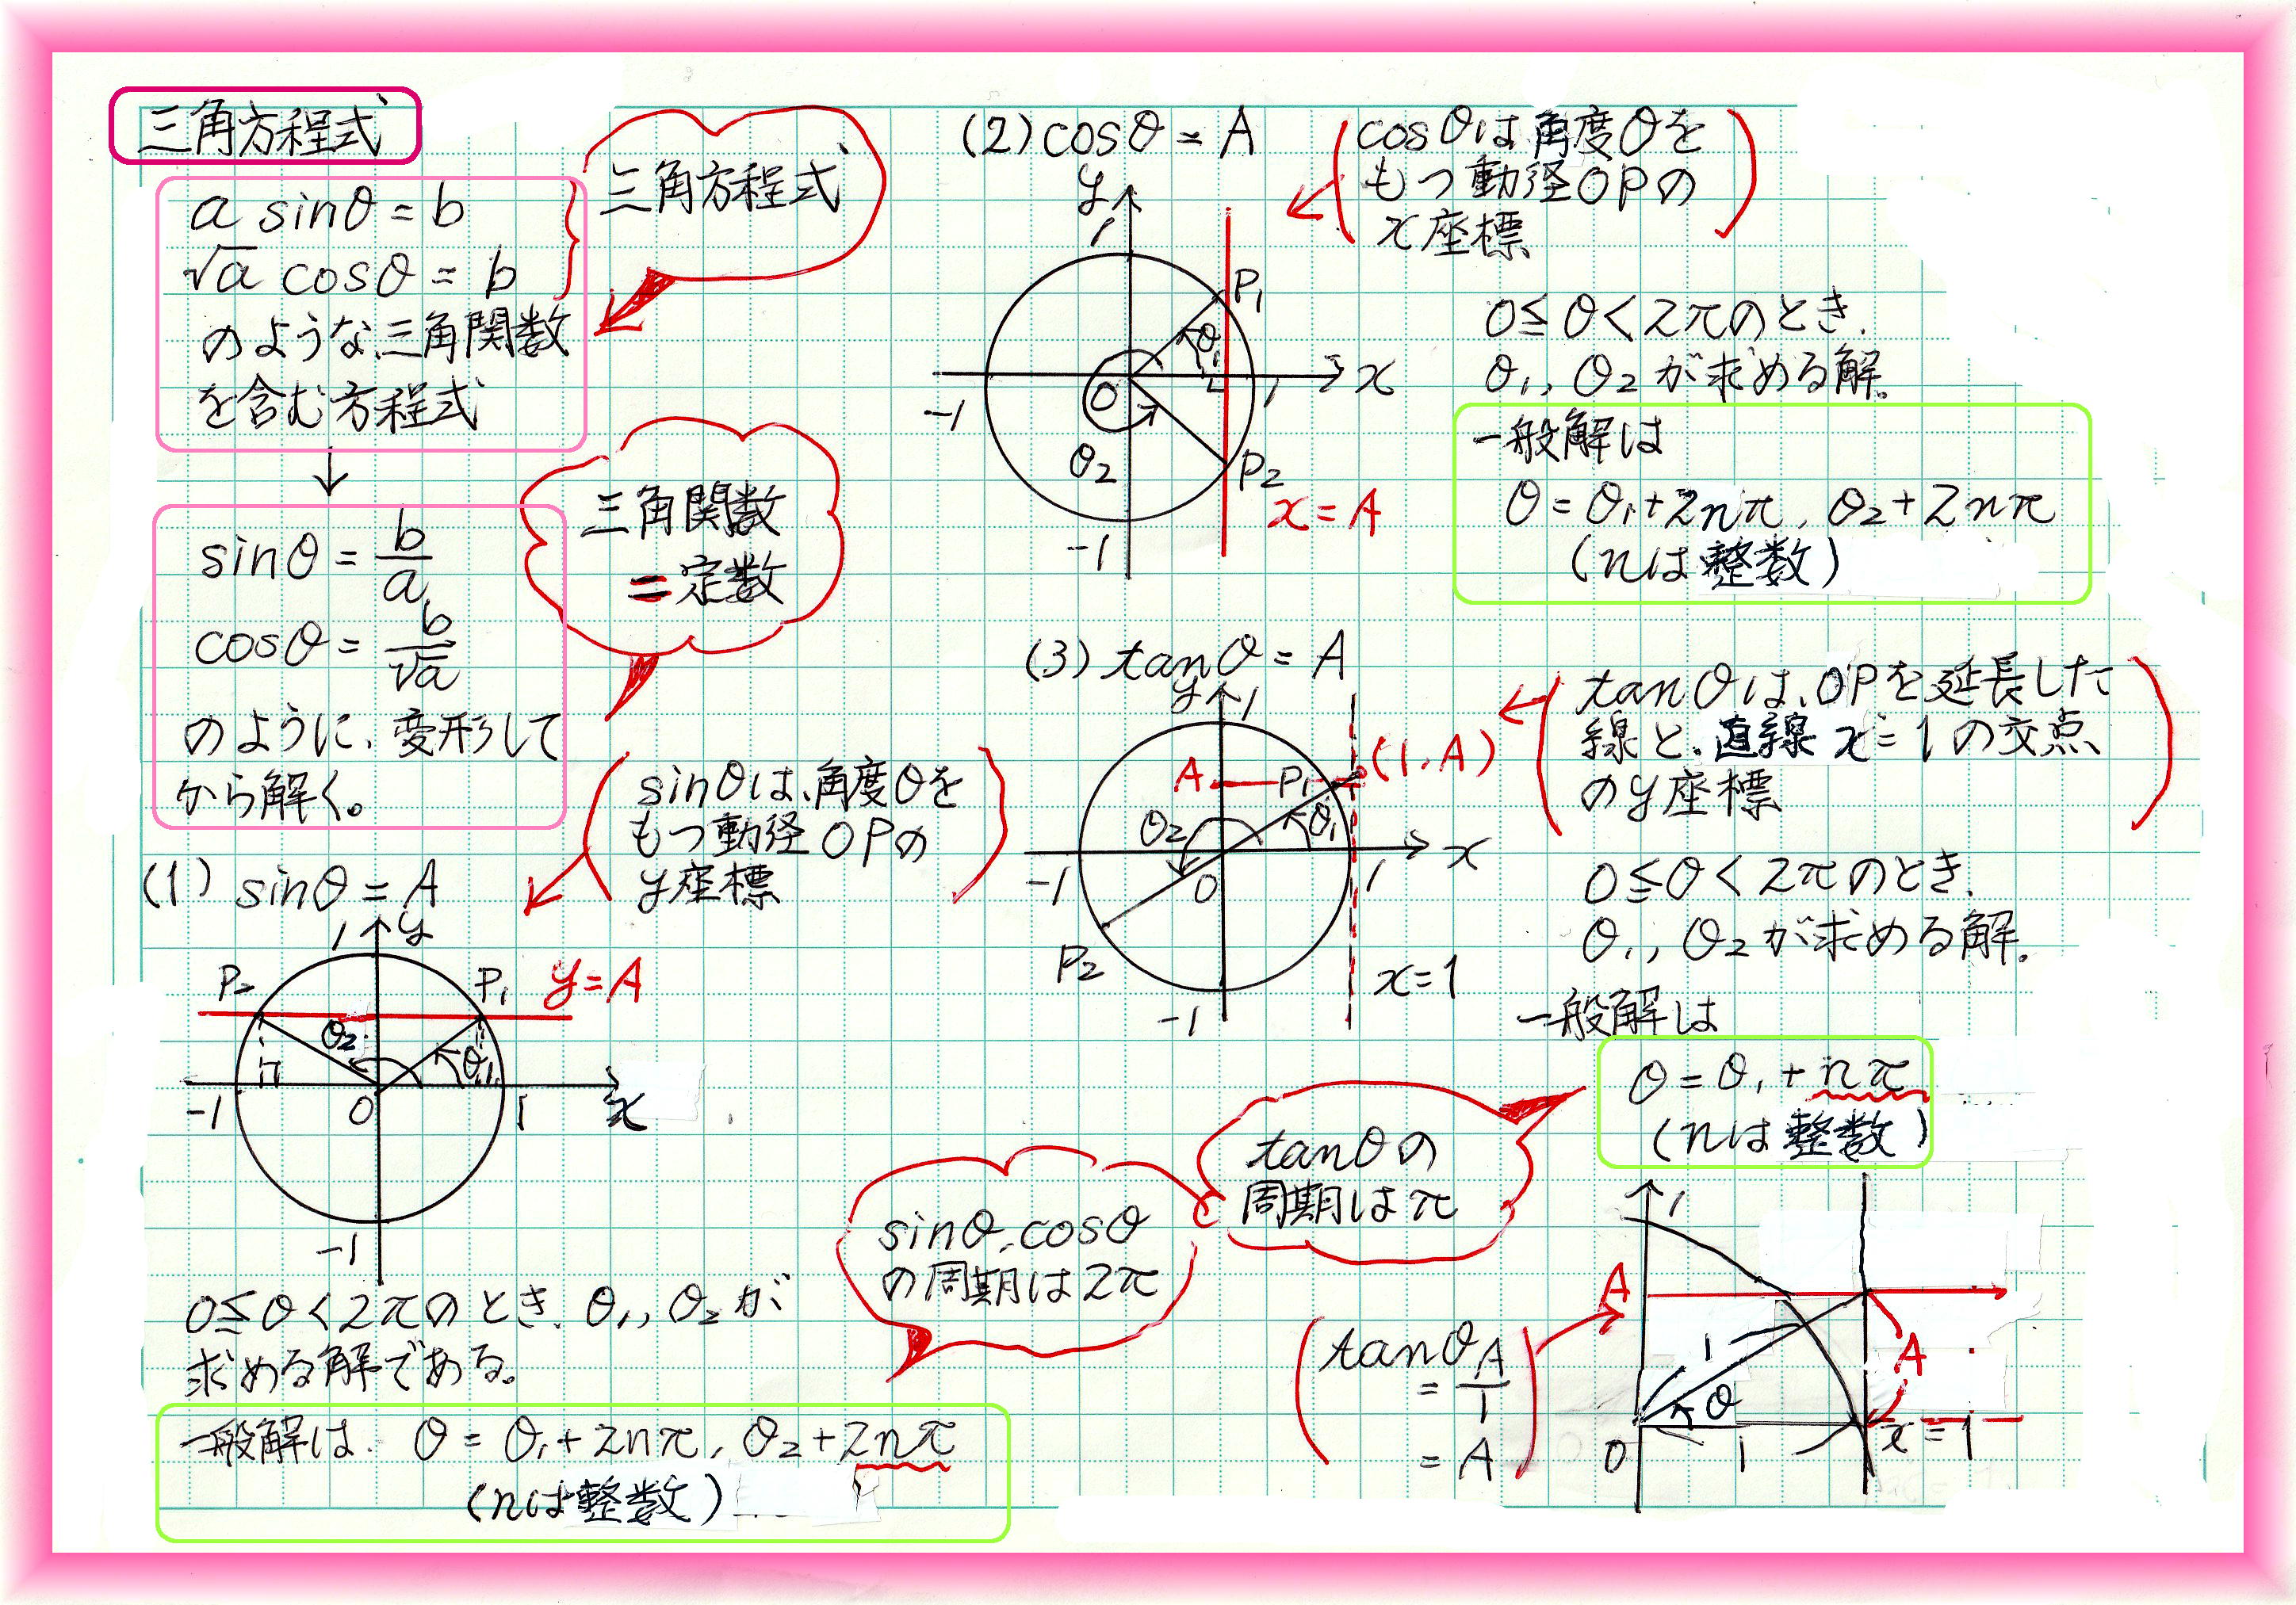 三角方程式
a sinθ = b
√a cosθ = b
のような三角関数
を含む方程式
三角方程式
↓
sinθ = b/a
cosθ = b/√a
のように、変形して
から解く。
三角関数
= 定数
(1) sinθ = A
sinθは、角度θを
もつ動径OPの
y座標
1 y
P₂ P₁ y=A
θ₂ θ₁
-1 O 1 x
-1
0≦θ<2πのとき、θ₁, θ₂が
求める解である。
sinθ, cosθ
の周期は2π
一般解は、θ = θ₁+2nπ, θ₂+2nπ
(nは整数)
(2) cosθ = A
cosθは角度θを
もつ動径OPの
x座標
y
1
P₁
θ₁
-1 O 1 x
θ₂
P₂
x=A
-1
0≦θ<2πのとき、
θ₁, θ₂が求める解。
一般解は
θ = θ₁+2nπ, θ₂+2nπ
(nは整数)
(3) tanθ = A
tanθは、OPを延長した
線と、直線 x=1の交点
のy座標
y 1
A P₁ (1, A)
θ₂ θ₁
-1 O 1 x
P₂
x=1
-1
0≦θ<2πのとき、
θ₁, θ₂が求める解。
一般解は
θ = θ₁ + nπ
(nは整数)
tanθの
周期はπ
1
A
tanθ
= A/1
= A
1 A
θ
O 1 x=1